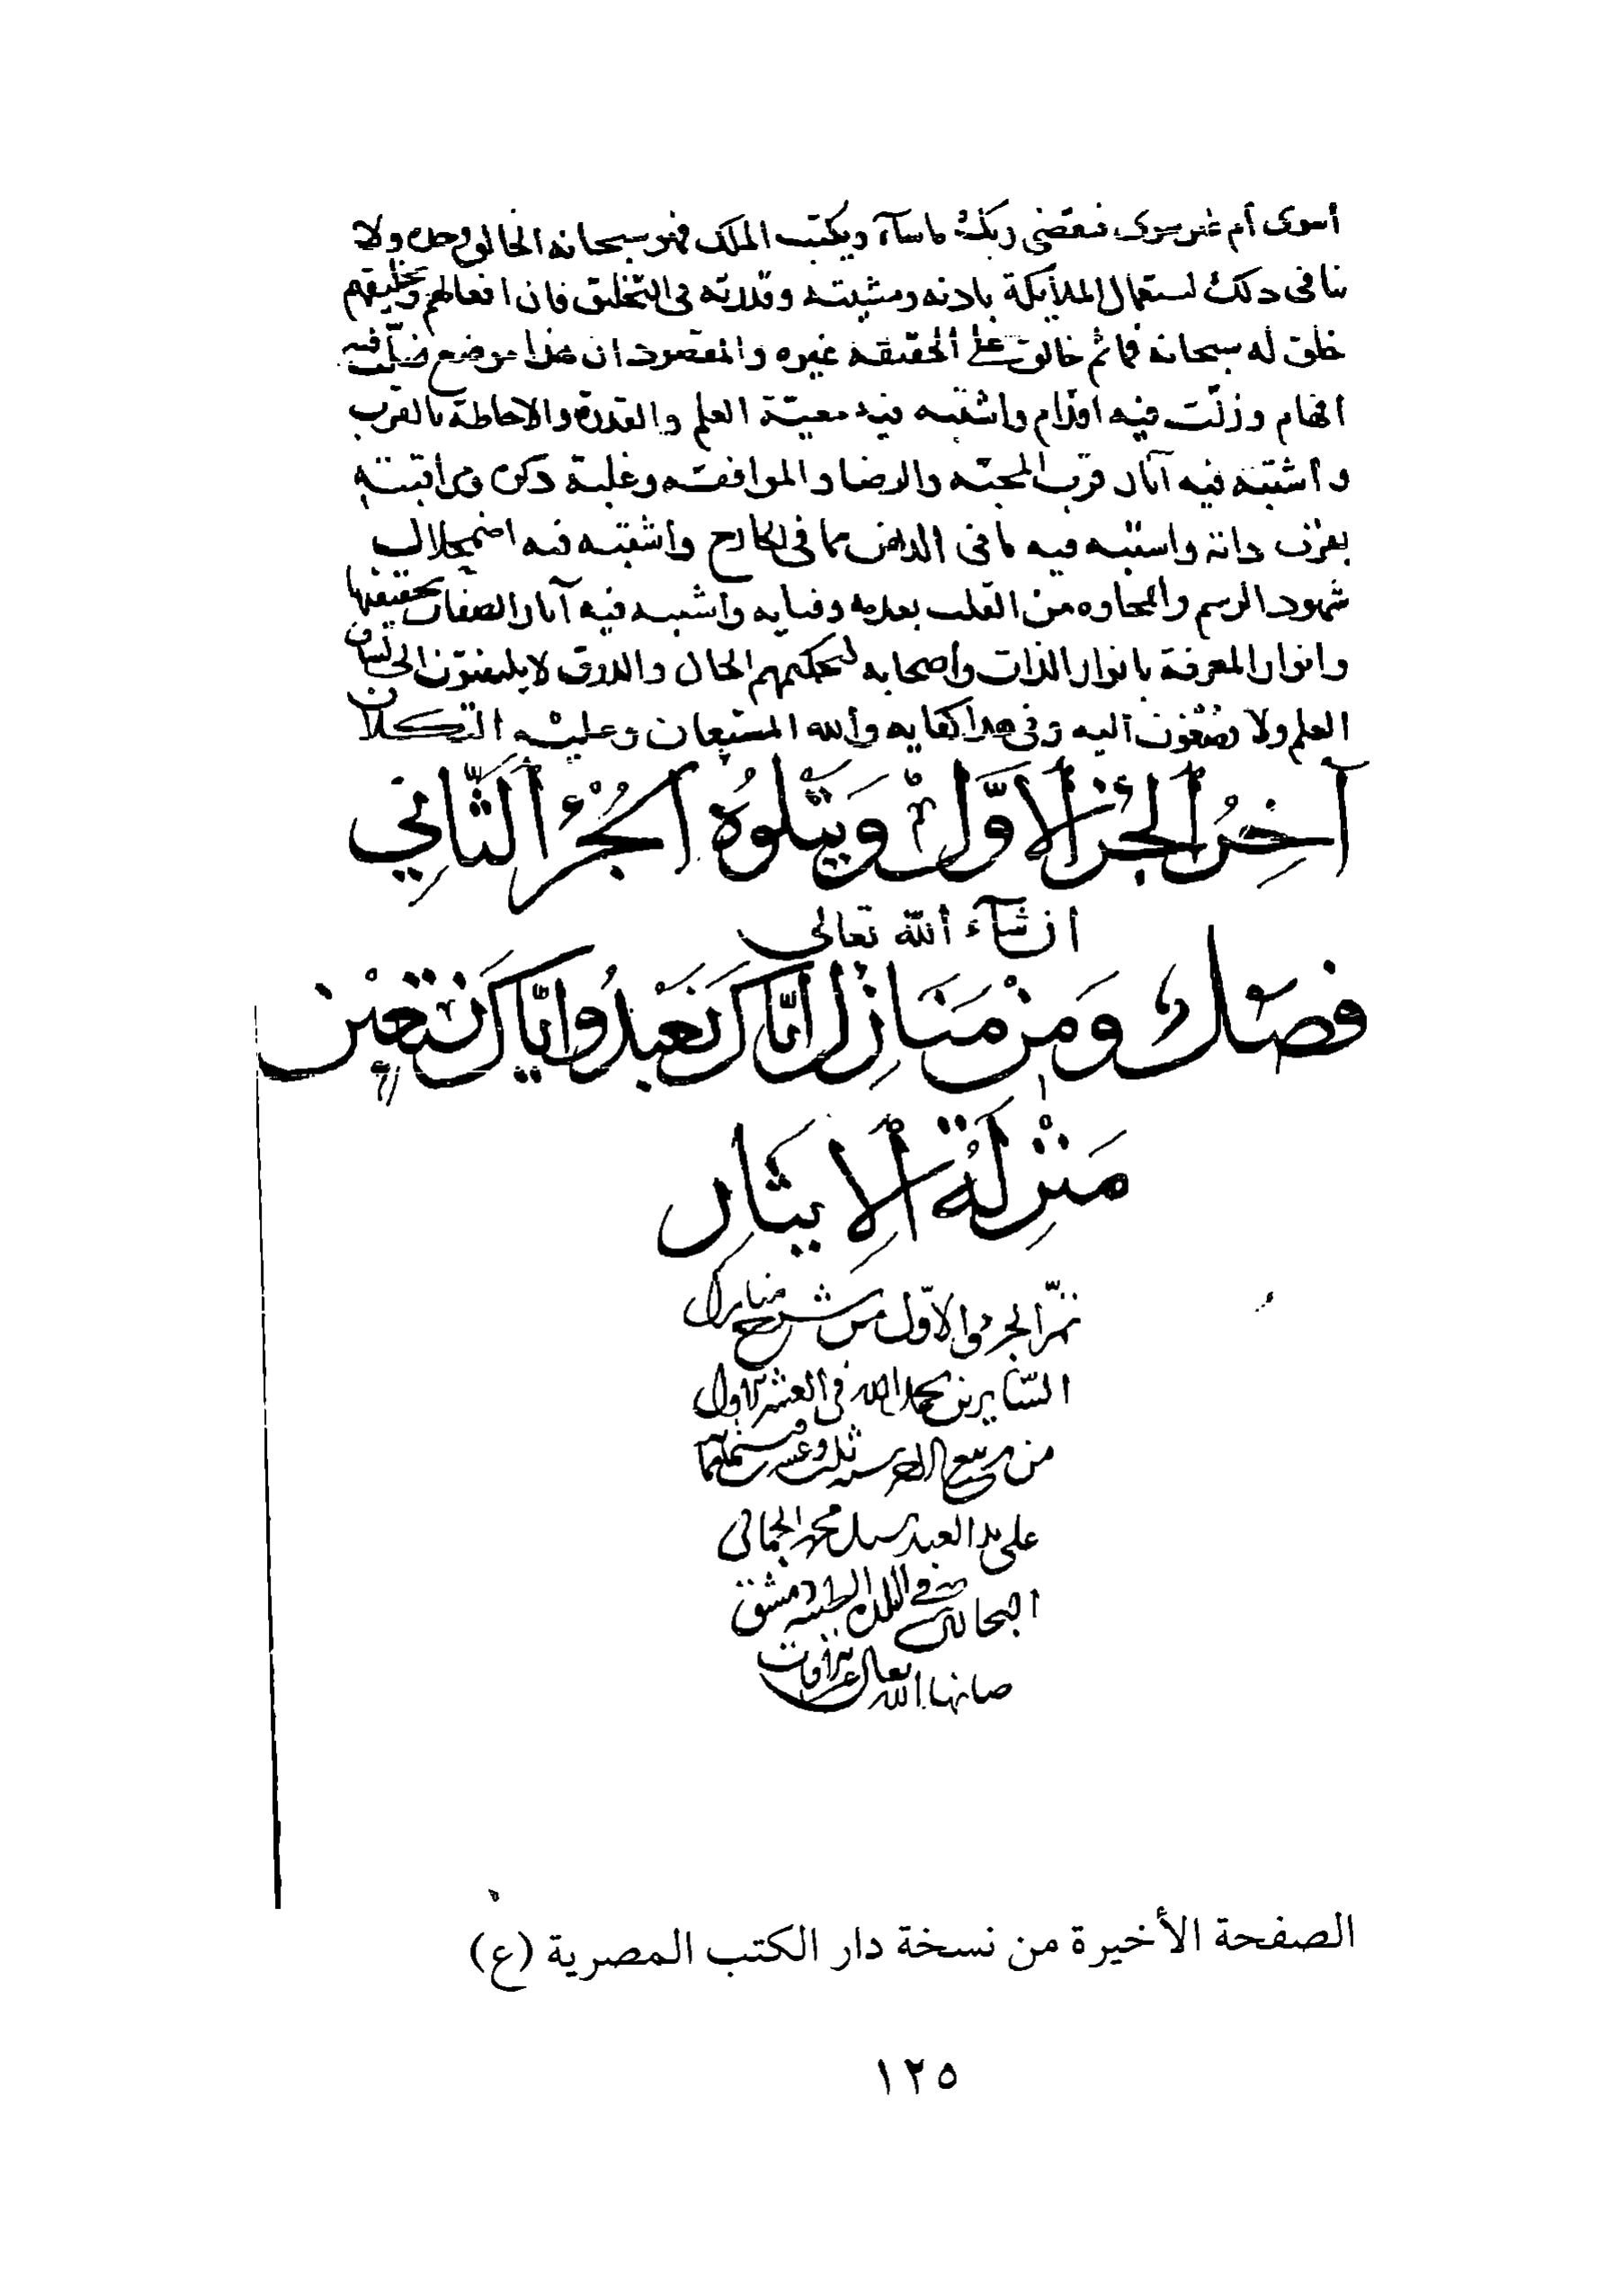 أسوى أم غير سوى فيقضي ربك ما شاء ويكتب الملك فهو سبحانه الخالق وحده ولا
ينافي ذلك استعمال الملائكة باذنه ومشيته وقدرته في التخليق فان افعالهم وتخليقهم
خلق له سبحانه فما ثم خالق على الحقيقة غيره والمقصود ان هذا موضع ضلت فيه
افهام وزلت فيه اقدام واشتبه فيه معية العلم والقدرة والاحاطة بالقرب
واشتبه فيه آثار قرب المحبة والرضا والموافقة وغلبة ذكره ومراقبته
بقرب ذاته واشتبه فيه ما في الذهن بما في الخارج واشتبه فيه اضمحلال
شهود الرسم وانمحاوه من القلب بعدمه وفنايه واشتبه فيه آثار الصفات بحقيقتها
وانوار المعرفة بانوار الذات وأصحابه لتحكيمهم الحال والذوق لا يلتفتون الى لسان
العلم ولا يصغون اليه وفي هذا كفاية والله المستعان وعليه التكلان
آخِرُ الجُزْءِ الأوَّلِ وَيَتْلُوهُ الجُزْءُ الثَّانِي
ان شآء الله تعالى
فصل وَمِنْ مَنَازِلِ ايَّاكَ نَعْبُدُ وايَّاكَ نَسْتَعِيْن
مَنْزِلَةُ الإيثَارِ
تمّ الجزء الاوّل من شرح منازل
السّايرين بحمد الله في العشر الاول
من ربيع الاخر سنة ثلث وعشرين
على يد العبد محمد
في البلد الطيبة دمشق
صانها الله تعالى عن الآفات
الصفحة الأخيرة من نسخة دار الكتب المصرية (ع)
١٢٥